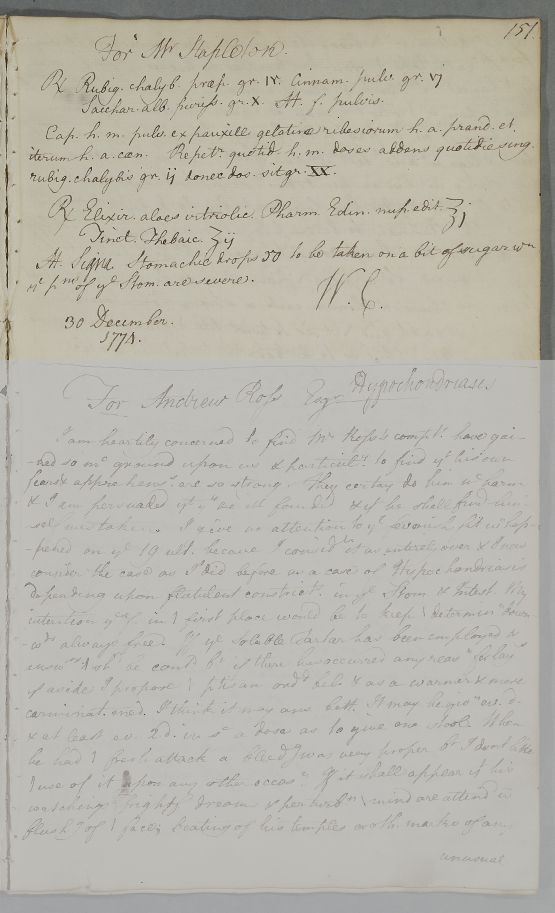 151.
For Mr Stapleton.
Rx Rubig. chalyb. præp. gr. iv. Cinnam. pulv. gr. vj
Sacchar. alb. puriss. gr. X. M. f. pulvis.
Cap. h. m. pulv. ex pauxill gelatinæ ribesiorum h. a. prand. et
iterum h. a. cæn. Repetr. quotid. h. m. doses addens quotidie sing.
rubig. chalybis gr. ij donec dos. sit gr. XX.
Rx Elixir. aloes vitriolic. Pharm. Edin. nup. edit. ʒj
Tinct. Thebaic. ʒij
M. Signa. Stomachic drops 50 to be taken on a bit of sugar wn
of ye Stom. are severe.
W. C.
30 December.
1774.
For Andrew Ross Esqr Hypochondriasis
I am heartily concerned to find Mr Ross's complts. have gai-
-ned so mc ground upon us & particulr. to find yt his own
fears & apprehensns. are so strong. They certay do him mc harm
& I am persuaded yt yy are ill founded & yt he shall find him-
self mistaken. I give no attention to ye swoonish fit wc hap-
-pened on ye 19 ult. because I consider it as entirely over & I now
consider the case as I did before as a case of Hypochondriasis
depending upon flatulent constrict. in ye Stom & Intest. My
intention in first place would be to keep determin down-
wds always free. If ye soluble Tartar has been employed &
is there has occurred any reasn for layg
it aside I propose ptisan ordd belo & as a warmer & more
carminat. med. I think it may ans bett. It may be givn ev. d.
& at least ev. 2d. in sc a dose as to give one stool. When
he had fresh attack a bleedg was very proper bt I dont like
use of it upon any other occasn. If it shall appear yt his
frightf dreams & perturbn mind are attend w
flushgs of face, beating of his temples or oth. marks of any
unusual